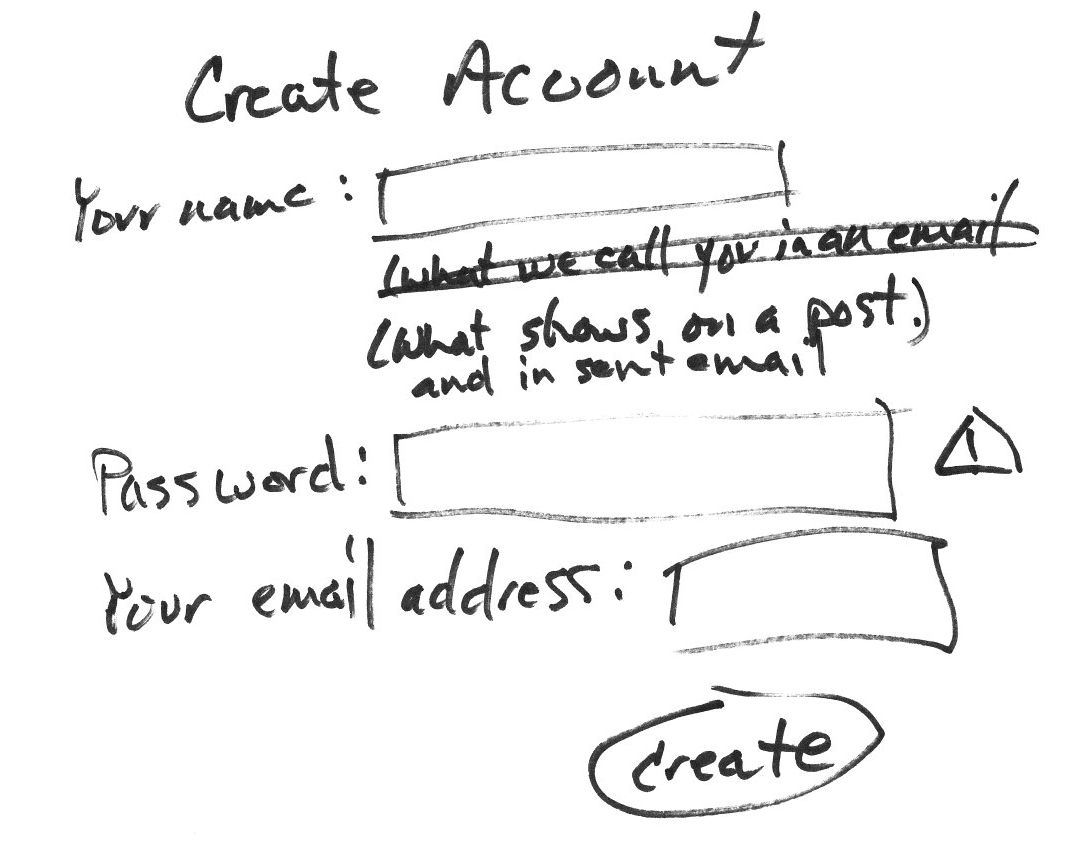 Create Account
Your name:
(what we call you in an email
(what shows on a post.)
and in sent email
Password:
!
Your email address:
create